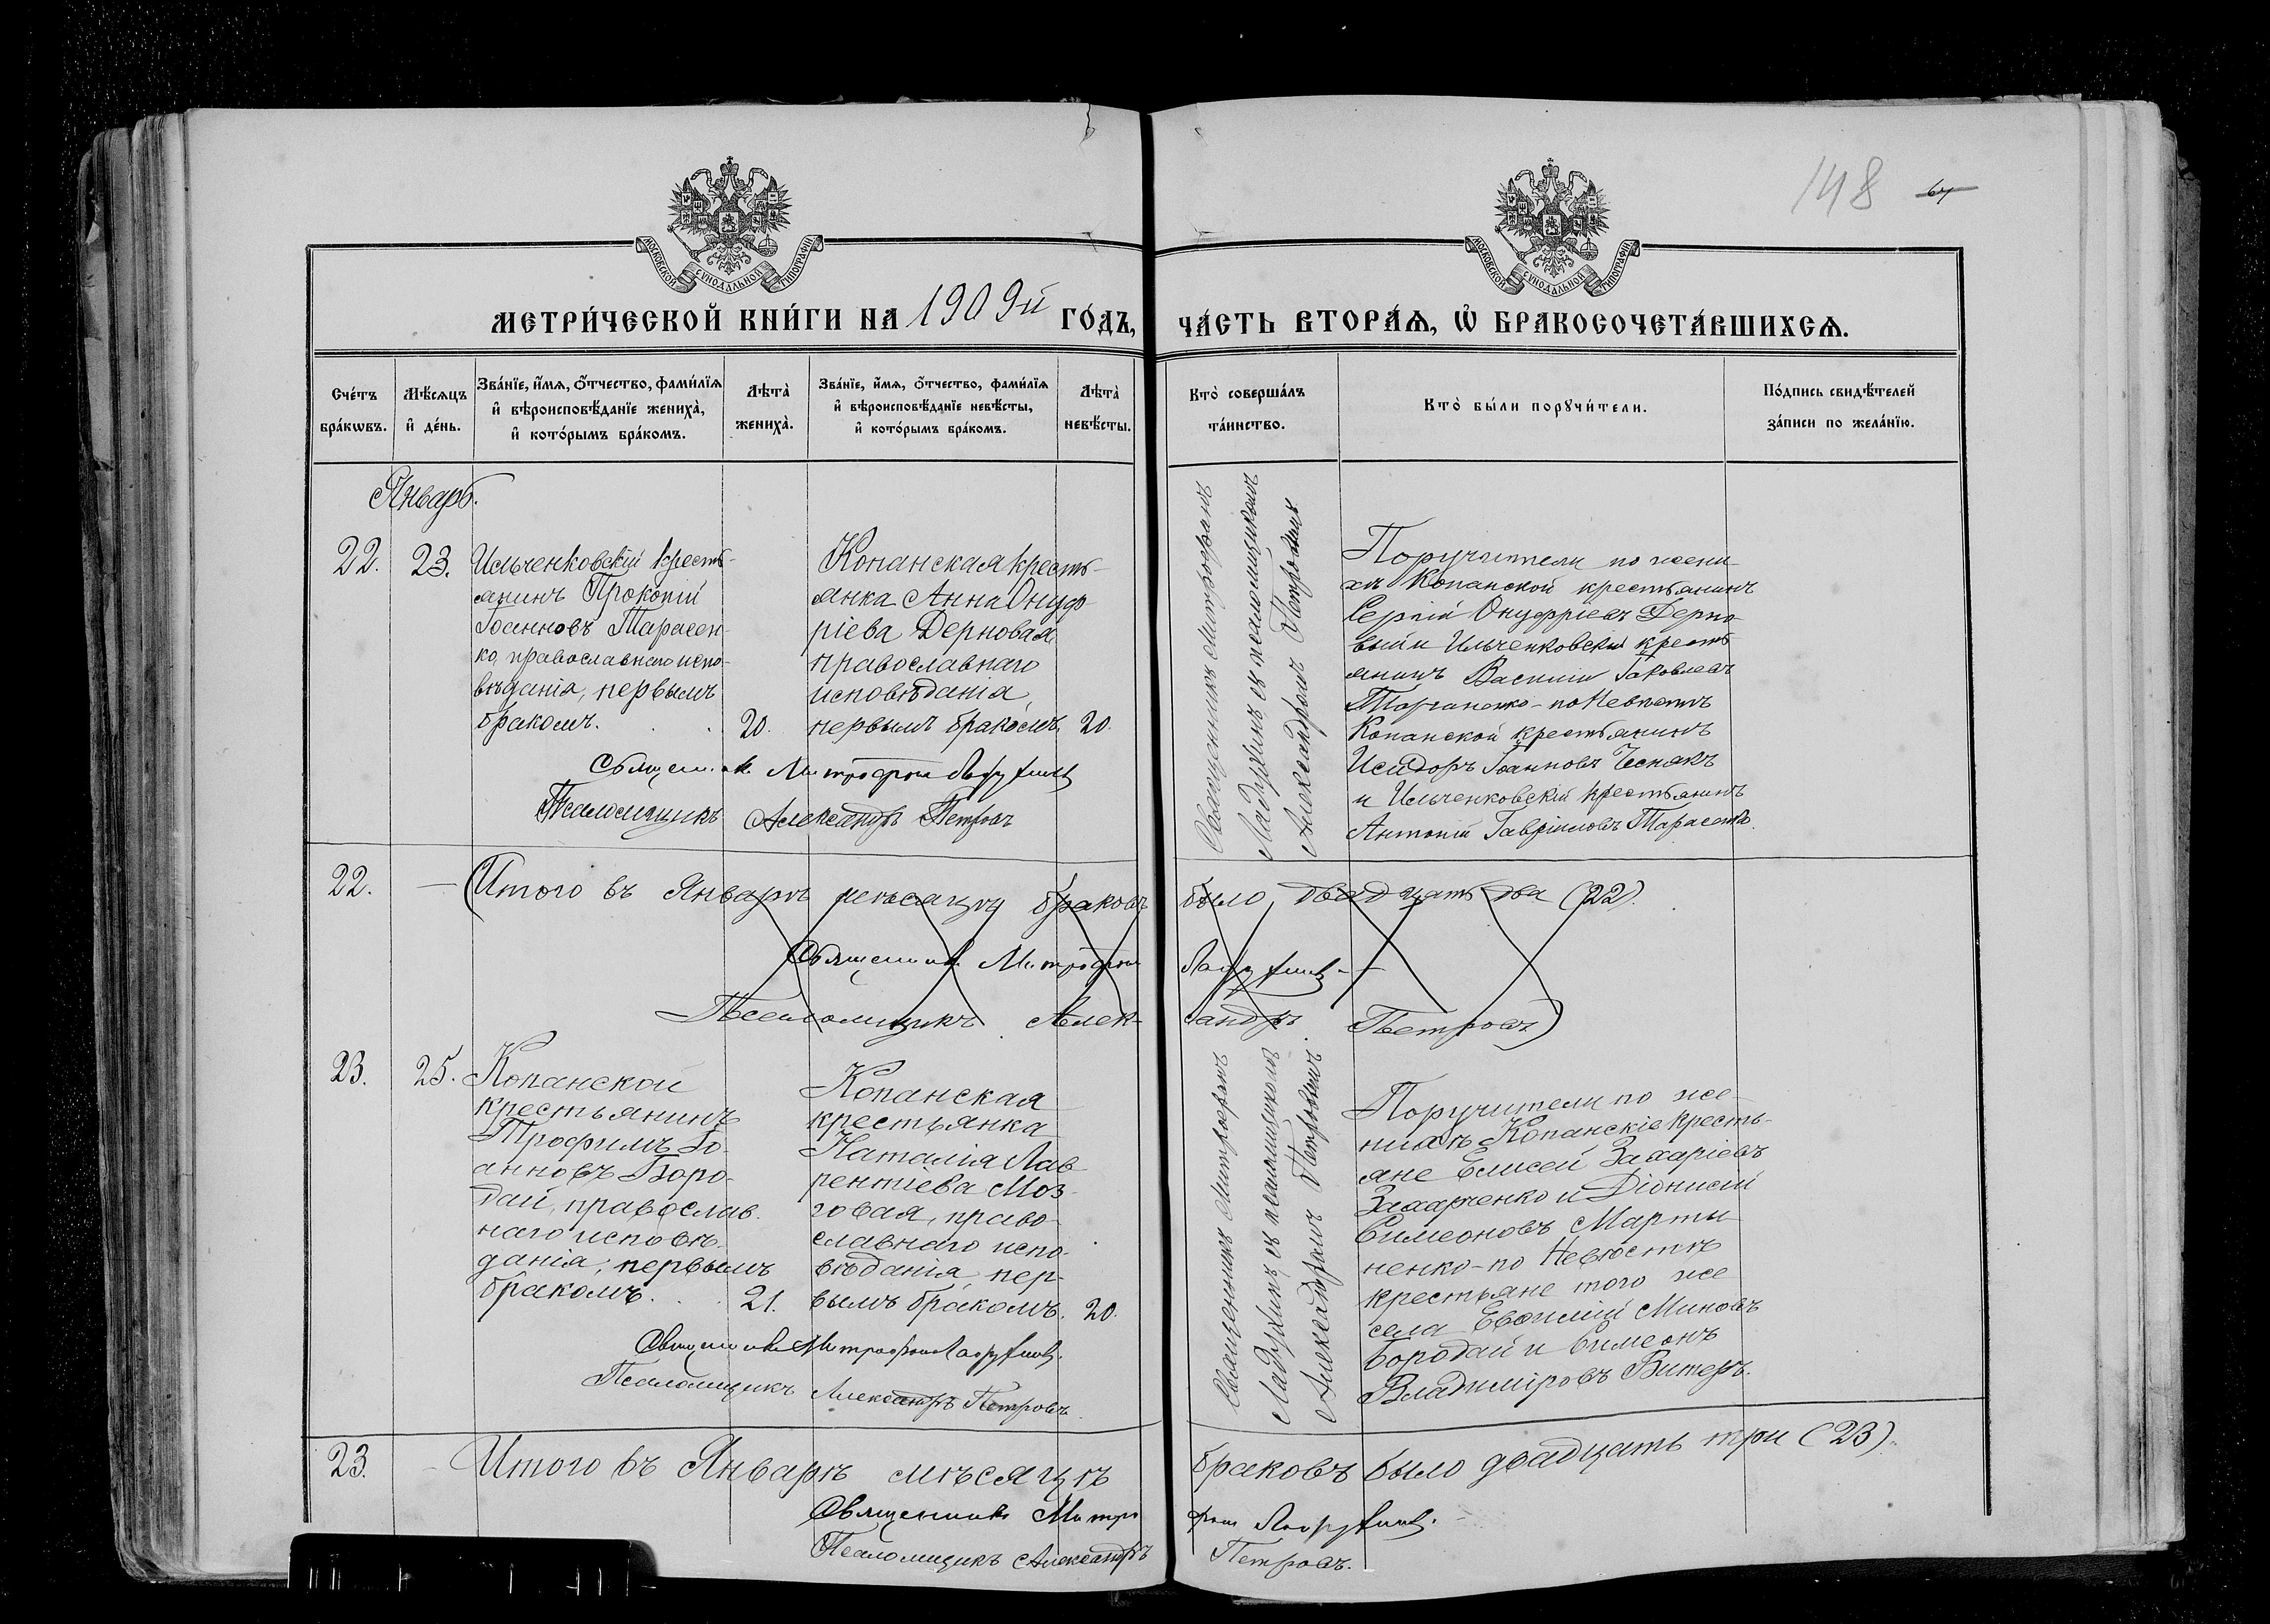 148 64
МОСКОВСКОЙ СѴНОДАЛЬНОЙ ТИПОГРАФІИ
МОСКОВСКОЙ СѴНОДАЛЬНОЙ ТИПОГРАФІИ
МЕТРИ́ЧЕСКОЙ КНИ́ГИ НА 1909й ГО́ДЪ,
ЧА́СТЬ ВТОРА́Ѧ, Ѽ БРАКОСОЧЕТА́ВШИХСѦ.
Сче́тъ бра́кѡвъ.
Мѣ́сѧцъ и҆ де́нь.
Зва́нїе, и҆́мѧ, ѻ҆́тчество, фами́лїѧ
и҆ вѣроисповѣ́данїе жениха̀,
и҆ кото́рымъ бра́комъ.
Лѣта̀ жениха̀.
Зва́нїе, и҆́мѧ, ѻ҆́тчество, фами́лїѧ
и҆ вѣроисповѣ́данїе невѣ́сты,
и҆ кото́рымъ бра́комъ.
Лѣта̀ невѣ́сты.
Кто̀ соверша́лъ та́инство.
Кто̀ бы́ли порꙋчи́тели.
По́дпись свидѣ́телей
за́писи по жела́нїю.
Январь.
22.
23.
Ильченковскій кресть-
янинъ Прокопій
Іоанновъ Тарасен-
ко, православнаго испо-
вѣданія, первымъ
бракомъ.
20.
Копанская кресть-
янка Анна Онуф-
ріева Дерновая
православнаго
исповѣданія,
первымъ бракомъ.
20.
Священникъ Митрофанъ
Ладухинъ съ псаломщикомъ
Александромъ Петровымъ
Поручители по жени-
хѣ Копанской крестьянинъ
Сергій Онуфріевъ Дерно-
вый и Ильченковскій кресть
янинъ Василій Іаковлевъ
по Невѣстѣ
Копанской крестьянинъ
Исидоръ Іоанновъ Чеснакъ
и Ильченковскій крестьянинъ
Антоній Гавріиловъ Тарасенко.
Священникъ Митрофанъ Ладухинъ
Псаломщикъ Александръ Петровъ
22. — (Итого въ Январѣ мѣсяцѣ браковъ было двадцать два (22).
Священникъ Митрофанъ Ладухинъ
Псаломщикъ Александръ Петровъ)
23.
25.
Копанской
крестьянинъ
Трофимъ Іо-
анновъ Боро-
дай, православ-
наго исповѣ-
данія, первымъ
бракомъ.
21.
Копанская
крестьянка
Наталія Лав
рентіева Моз-
говая, право-
славнаго испо-
вѣданія, пер-
вымъ бракомъ.
20.
Священникъ Митрофанъ
Ладухинъ съ псаломщикомъ
Александромъ Петровымъ.
Поручители по же-
нихѣ Копанскіе кресть-
яне Елисей Захаріевъ
Захарченко и Діонисій
Симеоновъ Марты-
ненко - по Невѣстѣ
крестьяне того же
села Евфимій Миновъ
Бородай и Симеонъ
Владиміровъ Витеръ.
Священникъ Митрофанъ Ладухинъ.
Псаломщикъ Александръ Петровъ.
23. — Итого въ Январѣ мѣсяцѣ браковъ было двадцать три (23).
Священникъ Митрофанъ Ладухинъ.
Псаломщикъ Александръ Петровъ.